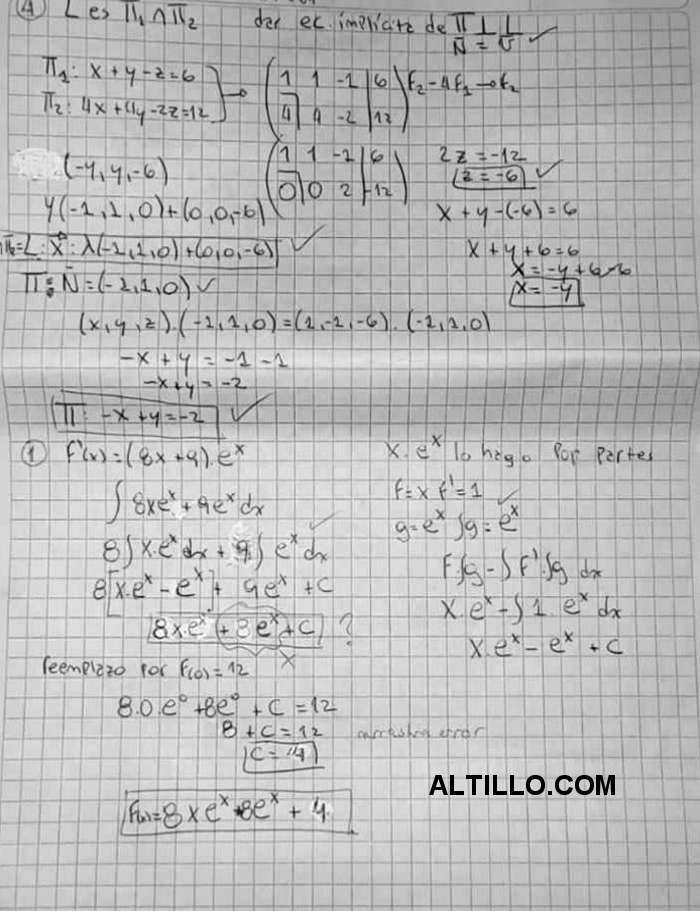 ④ L es Π₁ ∩ Π₂ dar ec. implícita de Π ⊥ L
N̄ = v̄ ✓
Π₁: x + y - z = 6
Π₂: 4x + 4y - 2z = 12
( 1 1 -1 | 6 ) F₂ - 4F₁ → F₂
( 4 4 -2 | 12 )
(-y, y, -6)
( 1 1 -1 | 6 )
( 0 0 2 | -12 )
2z = -12
z = -6 ✓
y(-1, 1, 0) + (0, 0, -6)
x + y - (-6) = 6
L: X: λ(-1, 1, 0) + (0, 0, -6) ✓
x + y + 6 = 6
x = -y + 6 - 6
x = -y
Π: N̄ = (-1, 1, 0) ✓
(x, y, z) · (-1, 1, 0) = (1, -1, -6) · (-1, 1, 0)
-x + y = -1 - 1
-x + y = -2
Π: -x + y = -2 ✓
① f'(x) = (8x + 9) · eˣ
∫ 8xeˣ + 9eˣ dx
8 ∫ x·eˣ dx + 9 ∫ eˣ dx ✓
8[x·eˣ - eˣ] + 9eˣ + C
8x·eˣ + 8eˣ + C ?
X
reemplazo por F(0) = 12
8·0·e⁰ + 8e⁰ + C = 12
8 + C = 12 arrastra error
C = 4
F(x) = 8xeˣ + 8eˣ + 4
x·eˣ lo hago por partes
f = x f' = 1 ✓
g = eˣ ∫g = eˣ
F·∫g - ∫F'·∫g dx
x·eˣ - ∫1·eˣ dx
x·eˣ - eˣ + C
ALTILLO.COM